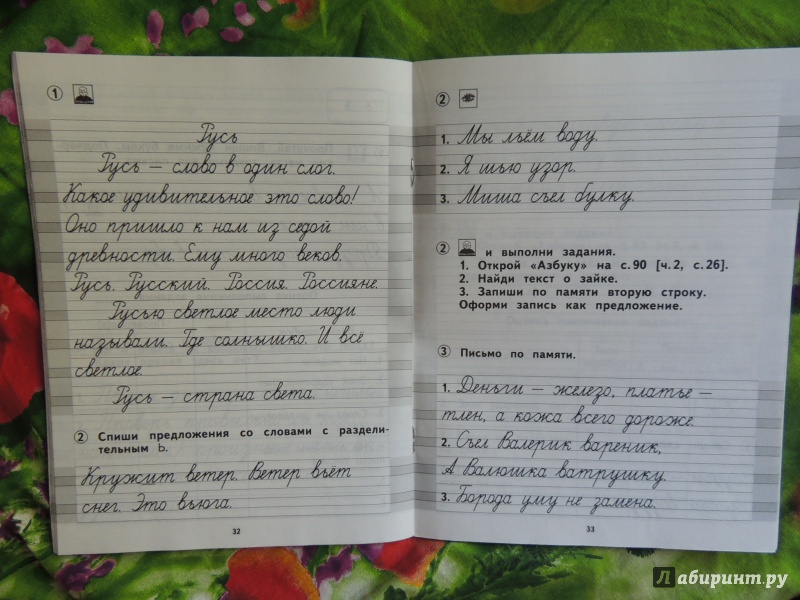 1
Русь
Русь — слово в один слог.
Какое удивительное это слово!
Оно пришло к нам из седой
древности. Ему много веков.
Русь. Русский. Россия. Россияне.
Русью светлое место люди
называли. Где солнышко. И всё
светлое
Русь — страна света.
2 Спиши предложения со словами с раздели-
тельным Ь.
Кружит ветер. Ветер вьёт
снег. Это вьюга.
32
2
1. Мы льём воду.
2. Я шью узор.
3. Миша съел булку.
2 и выполни задания.
1. Открой «Азбуку» на с.90 [ч.2, с.26].
2. Найди текст о зайке.
3. Запиши по памяти вторую строку.
Оформи запись как предложение.
3 Письмо по памяти.
1. Деньги — железо, платье —
тлен, а кожа всего дороже.
2. Съел Валерик вареник,
А Валюшка ватрушку.
3. Борода уму не замена.
33
Лабиринт.ру